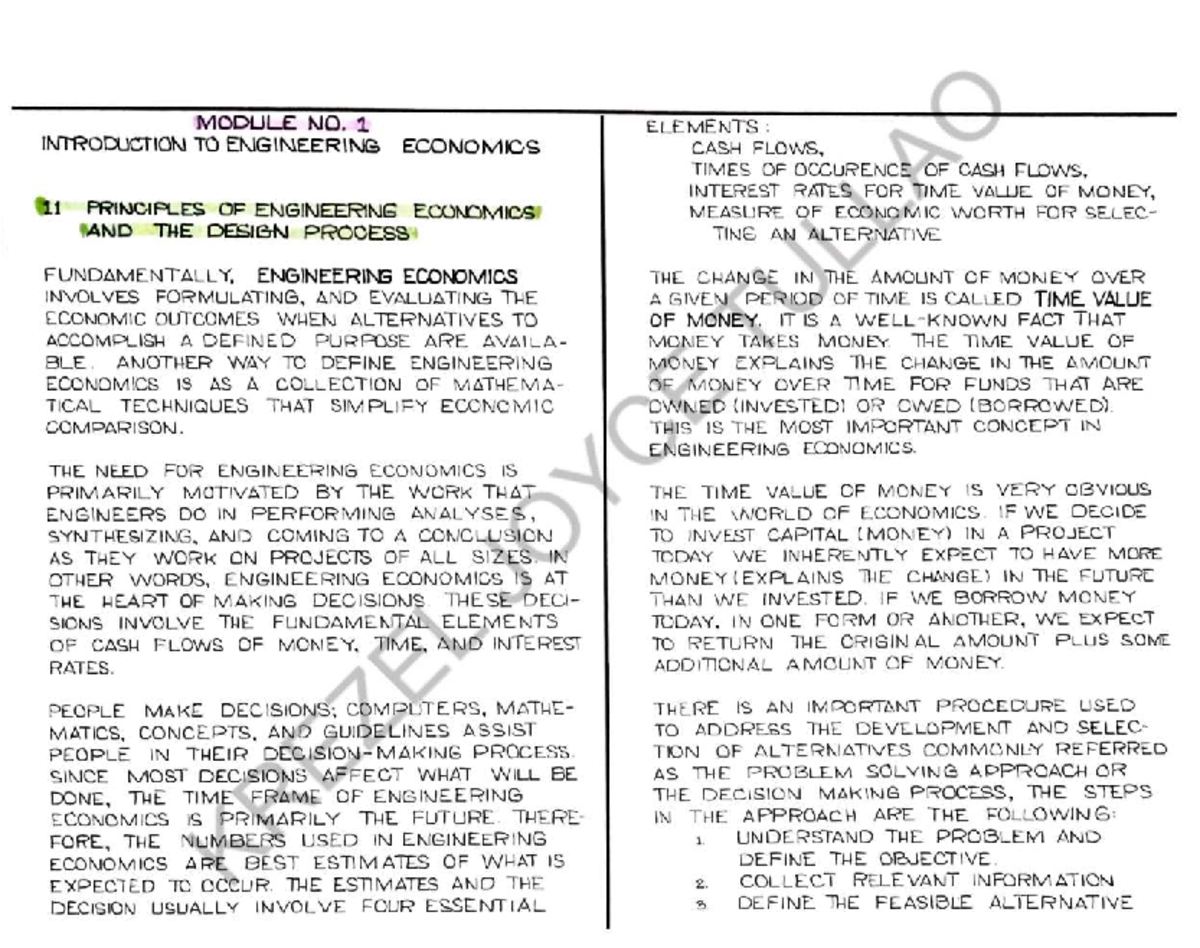 MODULE NO. 1
INTRODUCTION TO ENGINEERING ECONOMICS
1.1 PRINCIPLES OF ENGINEERING ECONOMICS
AND THE DESIGN PROCESS
FUNDAMENTALLY, ENGINEERING ECONOMICS
INVOLVES FORMULATING, AND EVALUATING THE
ECONOMIC OUTCOMES WHEN ALTERNATIVES TO
ACCOMPLISH A DEFINED PURPOSE ARE AVAILA-
BLE. ANOTHER WAY TO DEFINE ENGINEERING
ECONOMICS IS AS A COLLECTION OF MATHEMA-
TICAL TECHNIQUES THAT SIMPLIFY ECONOMIC
COMPARISON.
THE NEED FOR ENGINEERING ECONOMICS IS
PRIMARILY MOTIVATED BY THE WORK THAT
ENGINEERS DO IN PERFORMING ANALYSES,
SYNTHESIZING, AND COMING TO A CONCLUSION
AS THEY WORK ON PROJECTS OF ALL SIZES. IN
OTHER WORDS, ENGINEERING ECONOMICS IS AT
THE HEART OF MAKING DECISIONS. THESE DECI-
SIONS INVOLVE THE FUNDAMENTAL ELEMENTS
OF CASH FLOWS OF MONEY, TIME, AND INTEREST
RATES.
PEOPLE MAKE DECISIONS; COMPUTERS, MATHE-
MATICS, CONCEPTS, AND GUIDELINES ASSIST
PEOPLE IN THEIR DECISION-MAKING PROCESS.
SINCE MOST DECISIONS AFFECT WHAT WILL BE
DONE, THE TIME FRAME OF ENGINEERING
ECONOMICS IS PRIMARILY THE FUTURE. THERE-
FORE, THE NUMBERS USED IN ENGINEERING
ECONOMICS ARE BEST ESTIMATES OF WHAT IS
EXPECTED TO OCCUR. THE ESTIMATES AND THE
DECISION USUALLY INVOLVE FOUR ESSENTIAL
ELEMENTS:
CASH FLOWS,
TIMES OF OCCURENCE OF CASH FLOWS,
INTEREST RATES FOR TIME VALUE OF MONEY,
MEASURE OF ECONOMIC WORTH FOR SELEC-
TING AN ALTERNATIVE
THE CHANGE IN THE AMOUNT OF MONEY OVER
A GIVEN PERIOD OF TIME IS CALLED TIME VALUE
OF MONEY. IT IS A WELL-KNOWN FACT THAT
MONEY TAKES MONEY. THE TIME VALUE OF
MONEY EXPLAINS THE CHANGE IN THE AMOUNT
OF MONEY OVER TIME FOR FUNDS THAT ARE
OWNED (INVESTED) OR OWED (BORROWED).
THIS IS THE MOST IMPORTANT CONCEPT IN
ENGINEERING ECONOMICS.
THE TIME VALUE OF MONEY IS VERY OBVIOUS
IN THE WORLD OF ECONOMICS. IF WE DECIDE
TO INVEST CAPITAL (MONEY) IN A PROJECT
TODAY WE INHERENTLY EXPECT TO HAVE MORE
MONEY (EXPLAINS THE CHANGE) IN THE FUTURE
THAN WE INVESTED. IF WE BORROW MONEY
TODAY, IN ONE FORM OR ANOTHER, WE EXPECT
TO RETURN THE ORIGINAL AMOUNT PLUS SOME
ADDITIONAL AMOUNT OF MONEY.
THERE IS AN IMPORTANT PROCEDURE USED
TO ADDRESS THE DEVELOPMENT AND SELEC-
TION OF ALTERNATIVES COMMONLY REFERRED
AS THE PROBLEM SOLVING APPROACH OR
THE DECISION MAKING PROCESS, THE STEPS
IN THE APPROACH ARE THE FOLLOWING:
1. UNDERSTAND THE PROBLEM AND
DEFINE THE OBJECTIVE.
2. COLLECT RELEVANT INFORMATION
3. DEFINE THE FEASIBLE ALTERNATIVE
KREZEL JOYCE TULLAO